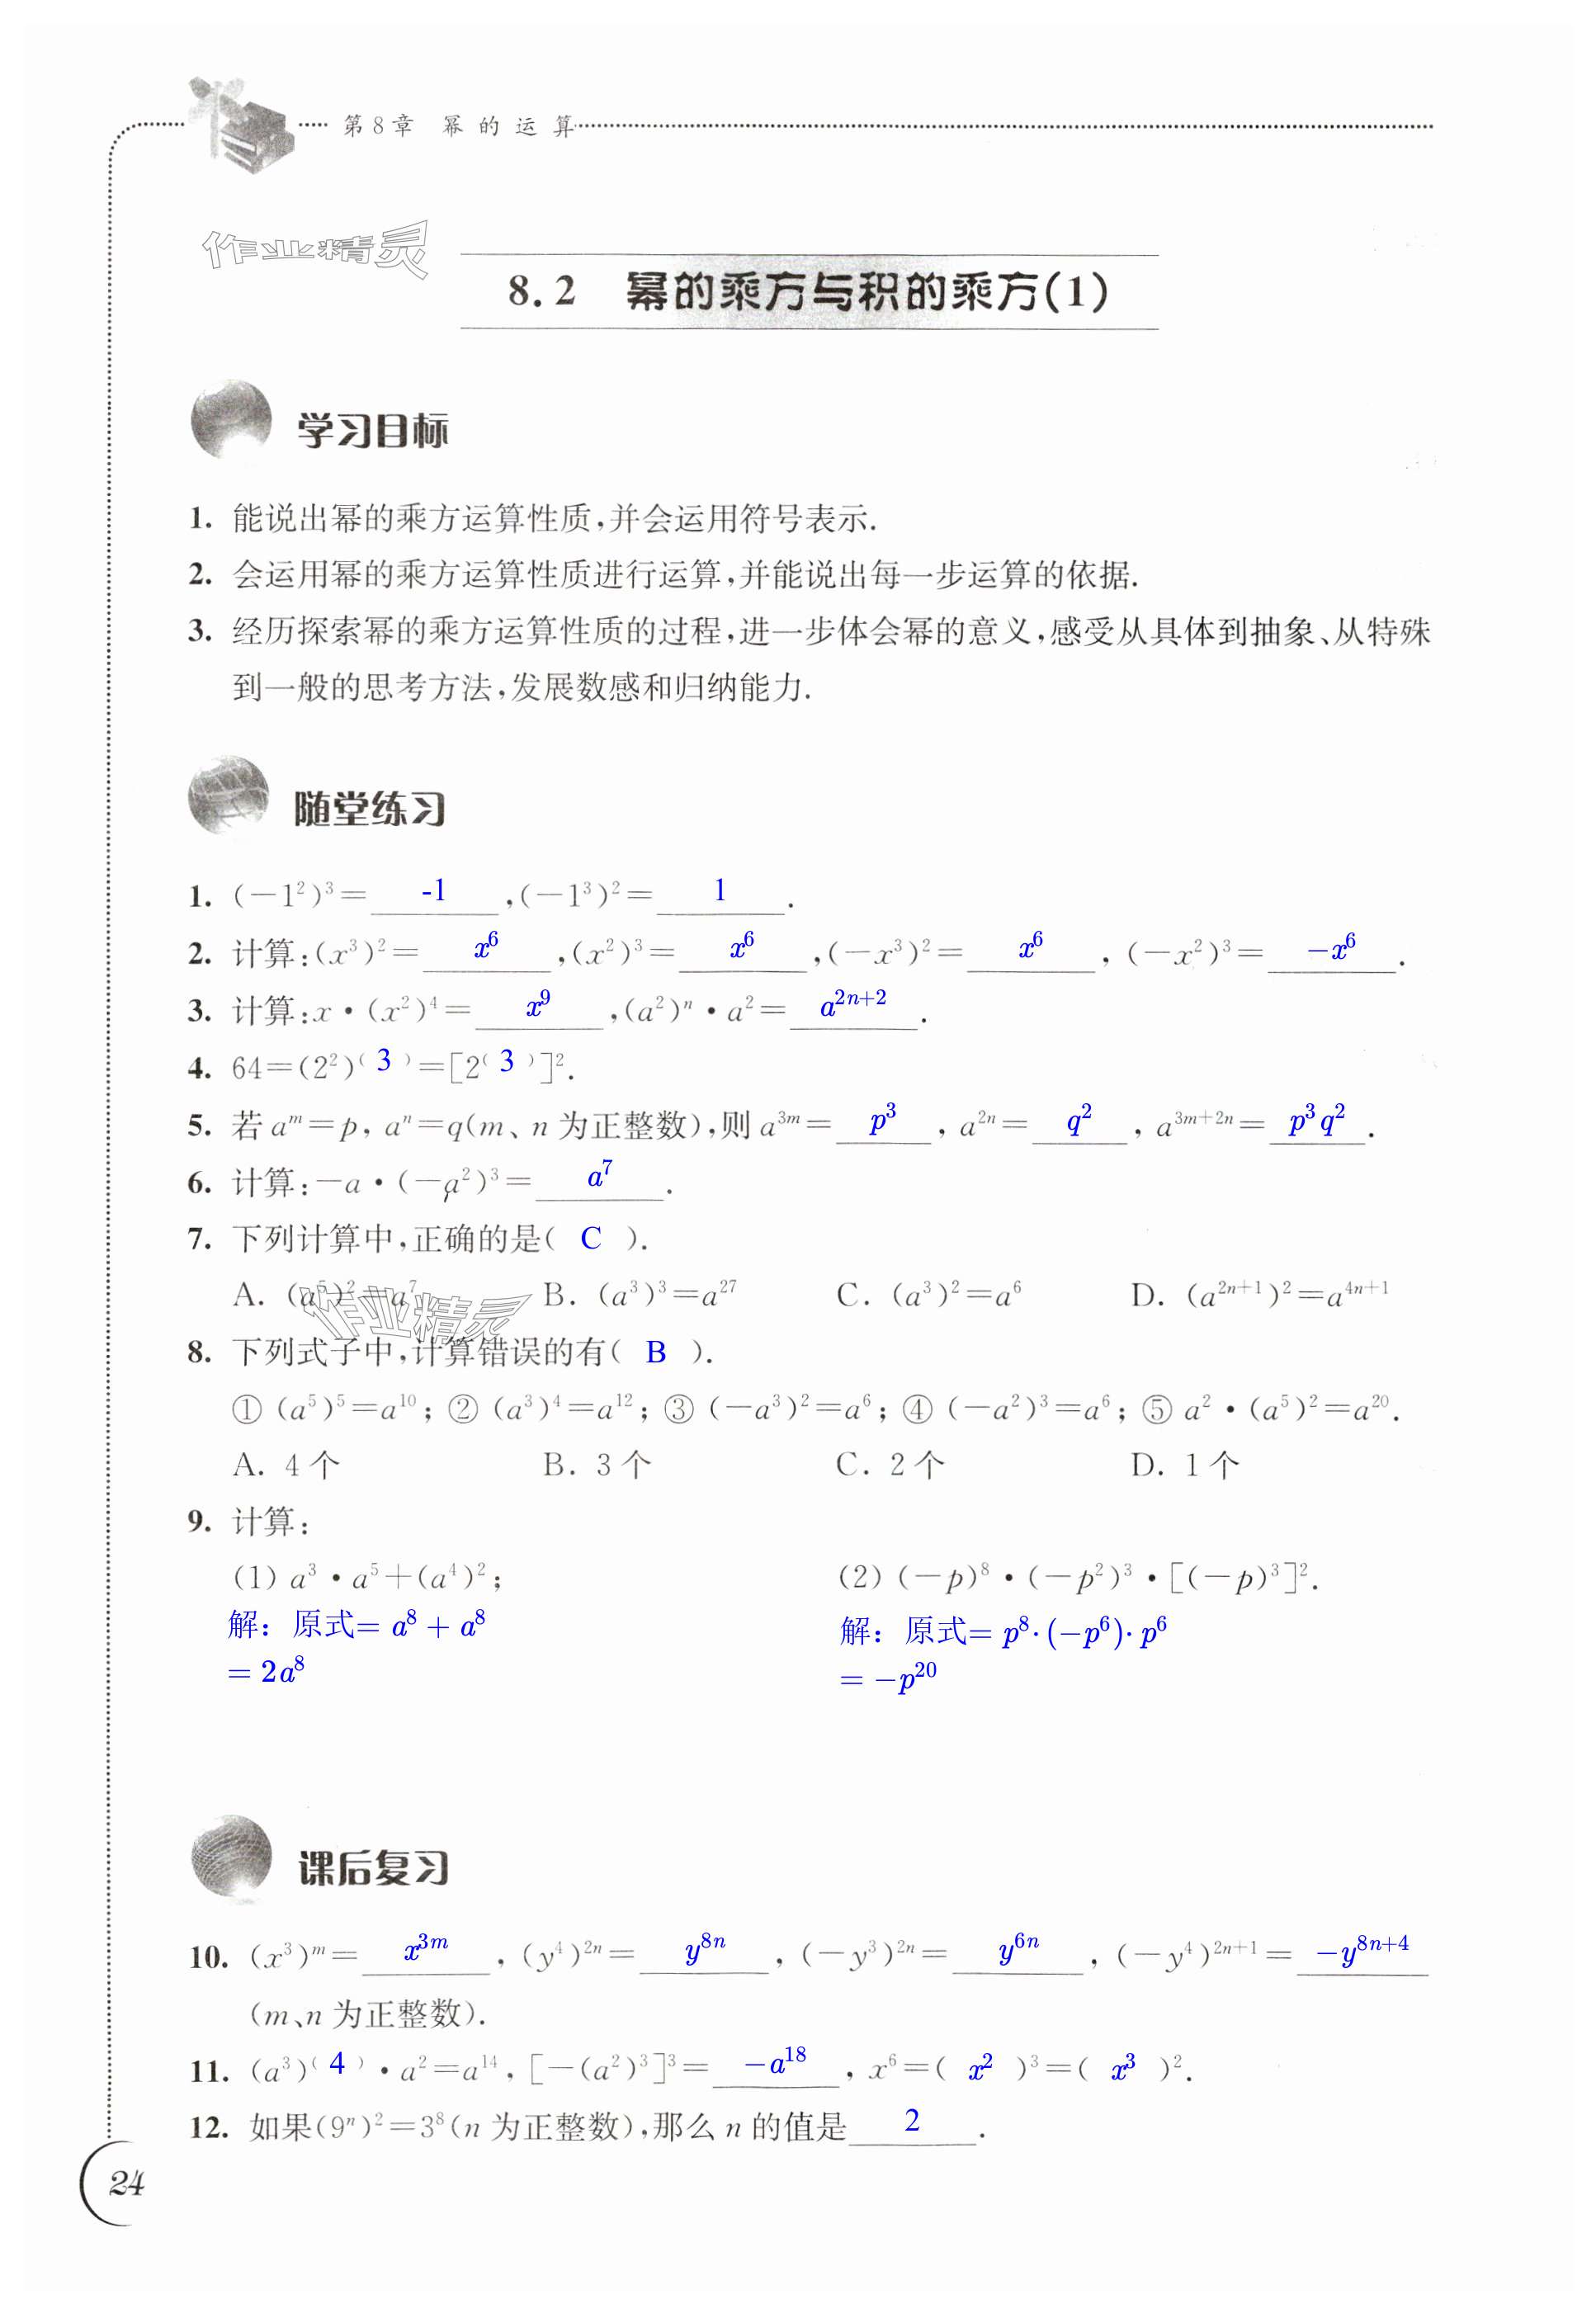 第8章 幂的运算
作业精灵
8.2 幂的乘方与积的乘方(1)
学习目标
1. 能说出幂的乘方运算性质,并会运用符号表示.
2. 会运用幂的乘方运算性质进行运算,并能说出每一步运算的依据.
3. 经历探索幂的乘方运算性质的过程,进一步体会幂的意义,感受从具体到抽象、从特殊
到一般的思考方法,发展数感和归纳能力.
随堂练习
1. (−1²)³=-1,(−1³)²=1.
2. 计算:(x³)²=x⁶,(x²)³=x⁶,(−x³)²=x⁶, (−x²)³=−x⁶.
3. 计算:x·(x²)⁴=x⁹,(a²)ⁿ·a²=a²ⁿ⁺².
4. 64=(2²)⁽³⁾=[2⁽³⁾]².
5. 若 aᵐ=p, aⁿ=q(m、n 为正整数),则 a³ᵐ=p³, a²ⁿ=q², a³ᵐ⁺²ⁿ=p³q².
6. 计算:−a·(−a²)³=a⁷.
7. 下列计算中,正确的是( C ).
A. (a⁵)²=a⁷ B. (a³)³=a²⁷ C. (a³)²=a⁶ D. (a²ⁿ⁺¹)²=a⁴ⁿ⁺¹
作业精灵
8. 下列式子中,计算错误的有( B ).
① (a⁵)⁵=a¹⁰; ② (a³)⁴=a¹²; ③ (−a³)²=a⁶; ④ (−a²)³=a⁶; ⑤ a²·(a⁵)²=a²⁰.
A. 4个 B. 3个 C. 2个 D. 1个
9. 计算:
(1) a³·a⁵+(a⁴)²; (2) (−p)⁸·(−p²)³·[(−p)³]².
解：原式= a⁸ + a⁸ 解：原式= p⁸·(−p⁶)·p⁶
= 2a⁸ = −p²⁰
课后复习
10. (x³)ᵐ=x³ᵐ, (y⁴)²ⁿ=y⁸ⁿ, (−y³)²ⁿ=y⁶ⁿ, (−y⁴)²ⁿ⁺¹=−y⁸ⁿ⁺⁴
(m、n 为正整数).
11. (a³)⁽⁴⁾·a²=a¹⁴, [−(a²)³]³=−a¹⁸, x⁶=( x² )³=( x³ )².
12. 如果(9ⁿ)²=3⁸(n 为正整数),那么 n 的值是2.
24